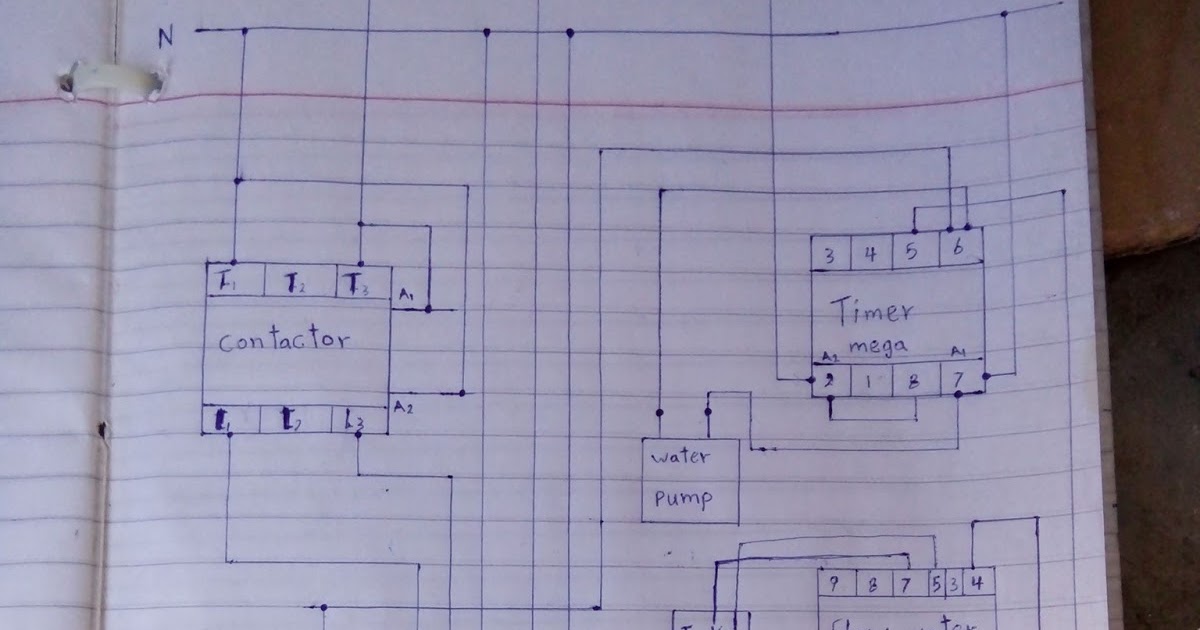 N
T1 T2 T3
A1
contactor
A2
L1 L2 L3
3 4 5 6
Timer
mega
A2 A1
2 1 8 7
water
pump
9 8 7 5 3 4